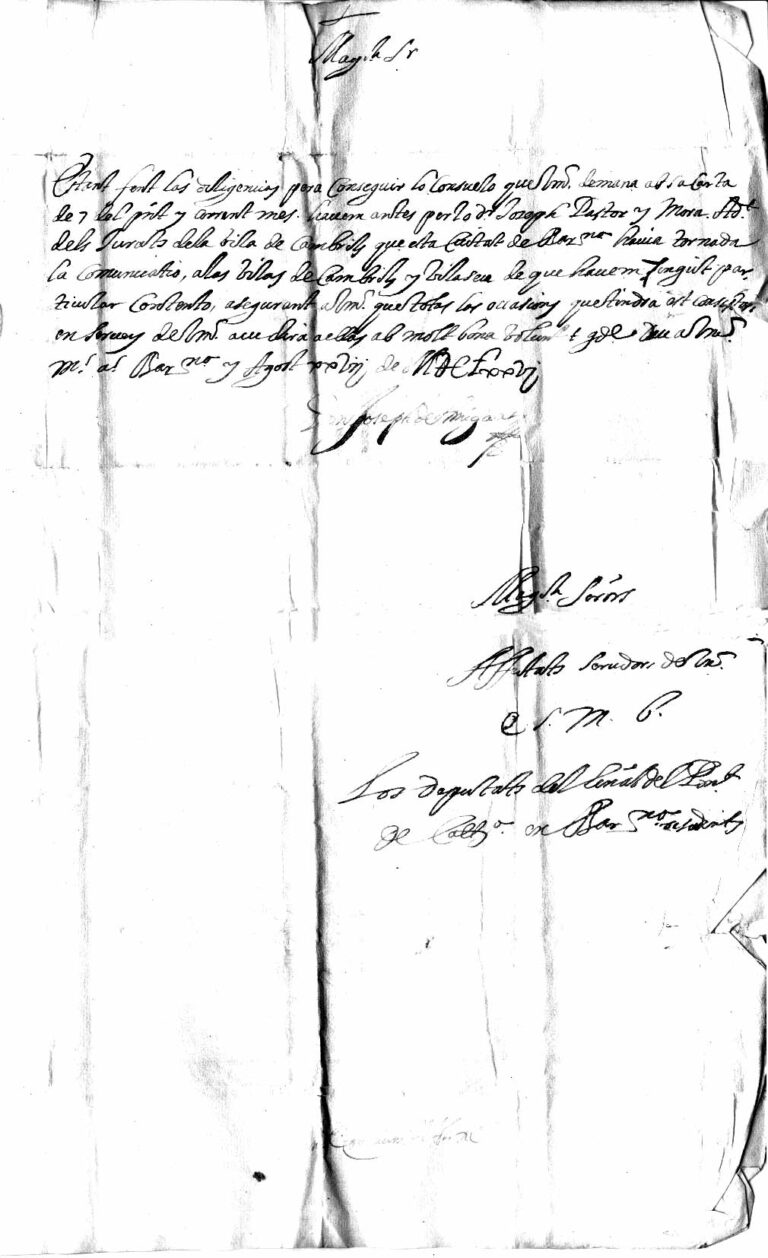 Magch Sr
Estant fent las diligencias pera Conseguir lo Consuelo que Vm. demana ab sa Carta
de 7 del pnt y corrent mes. havem antes per lo dr Joseph Pastor y Mora. Ad.t
dels Jurats dela Villa de Cambrils que esta Ciutat de Barna havia tornada
la Comunicatio, a las Villas de Cambrils y Vilaseca de que havem tingut par
ticular Contento, asegurant a Vm. que totas las occasions que tindra est
en servey de Vm. acudira a ellas ab molt bona volunt gde Deu a Vm.
m.s a.s Barna y Agost xxviij de MDCLxxvij
Don Joseph de
Magch Senors
Affectats servidors de Vm.
Q S. M. B.
Los deputats del General del Prat
de Cathna en Barna residents